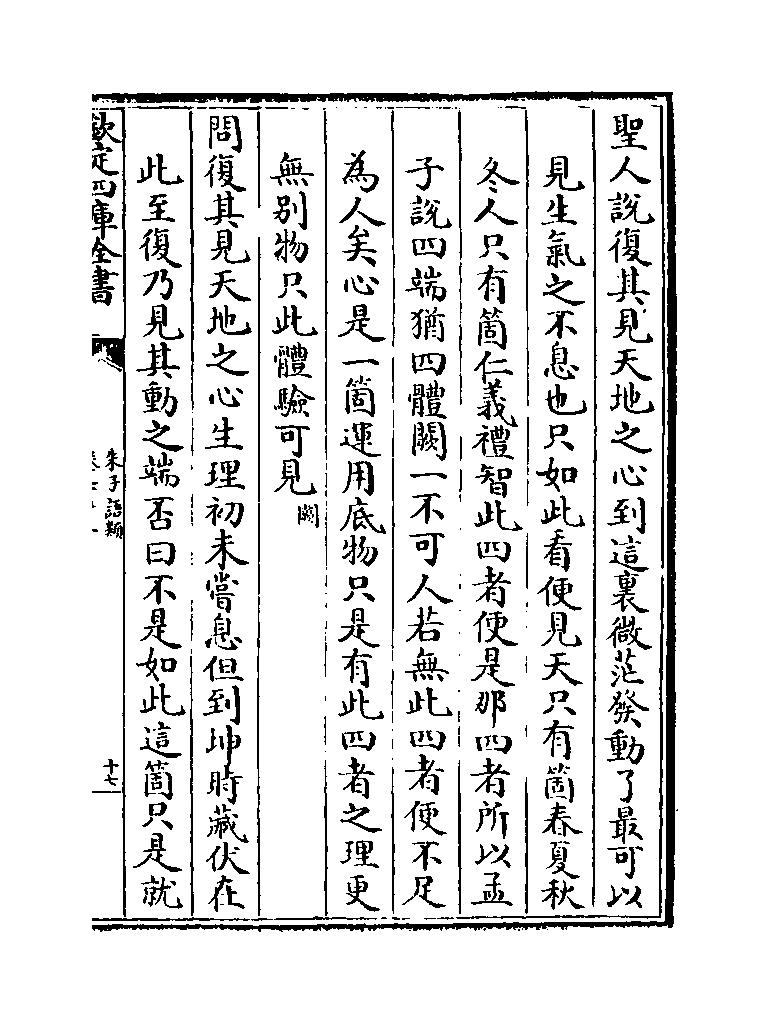 聖人說復其見天地之心到這裏微茫發動了最可以
見生氣之不息也只如此看便見天只有箇春夏秋
冬人只有箇仁義禮智此四者便是那四者所以孟
子說四端猶四體闕一不可人若無此四者便不足
為人矣心是一箇運用底物只是有此四者之理更
無别物只此體驗可見闕
問復其見天地之心生理初未嘗息但到坤時藏伏在
此至復乃見其動之端否曰不是如此這箇只是就
欽定四庫全書
朱子語類
十七